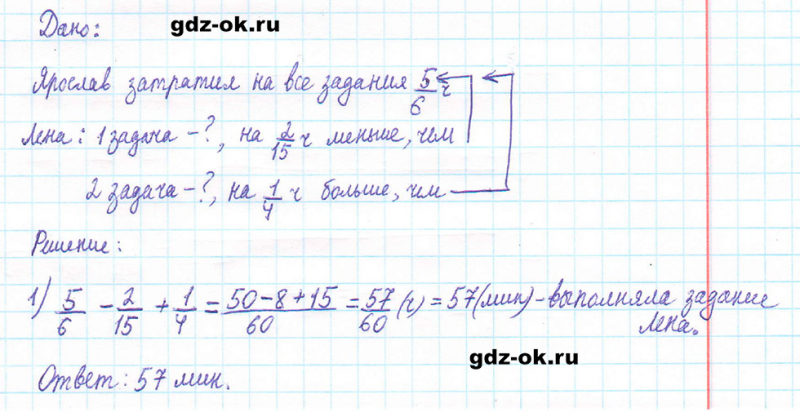 Дано: gdz-ok.ru
Ярослав затратил на все задания 5/6 ч
Лена: 1 задача – ?, на 2/15 ч меньше, чем
2 задача – ?, на 1/4 ч больше, чем
Решение:
1) 5/6 - 2/15 + 1/4 = 50-8+15/60 = 57/60 (ч) = 57 (мин) - выполняла задание
Лена.
gdz-ok.ru
Ответ: 57 мин.